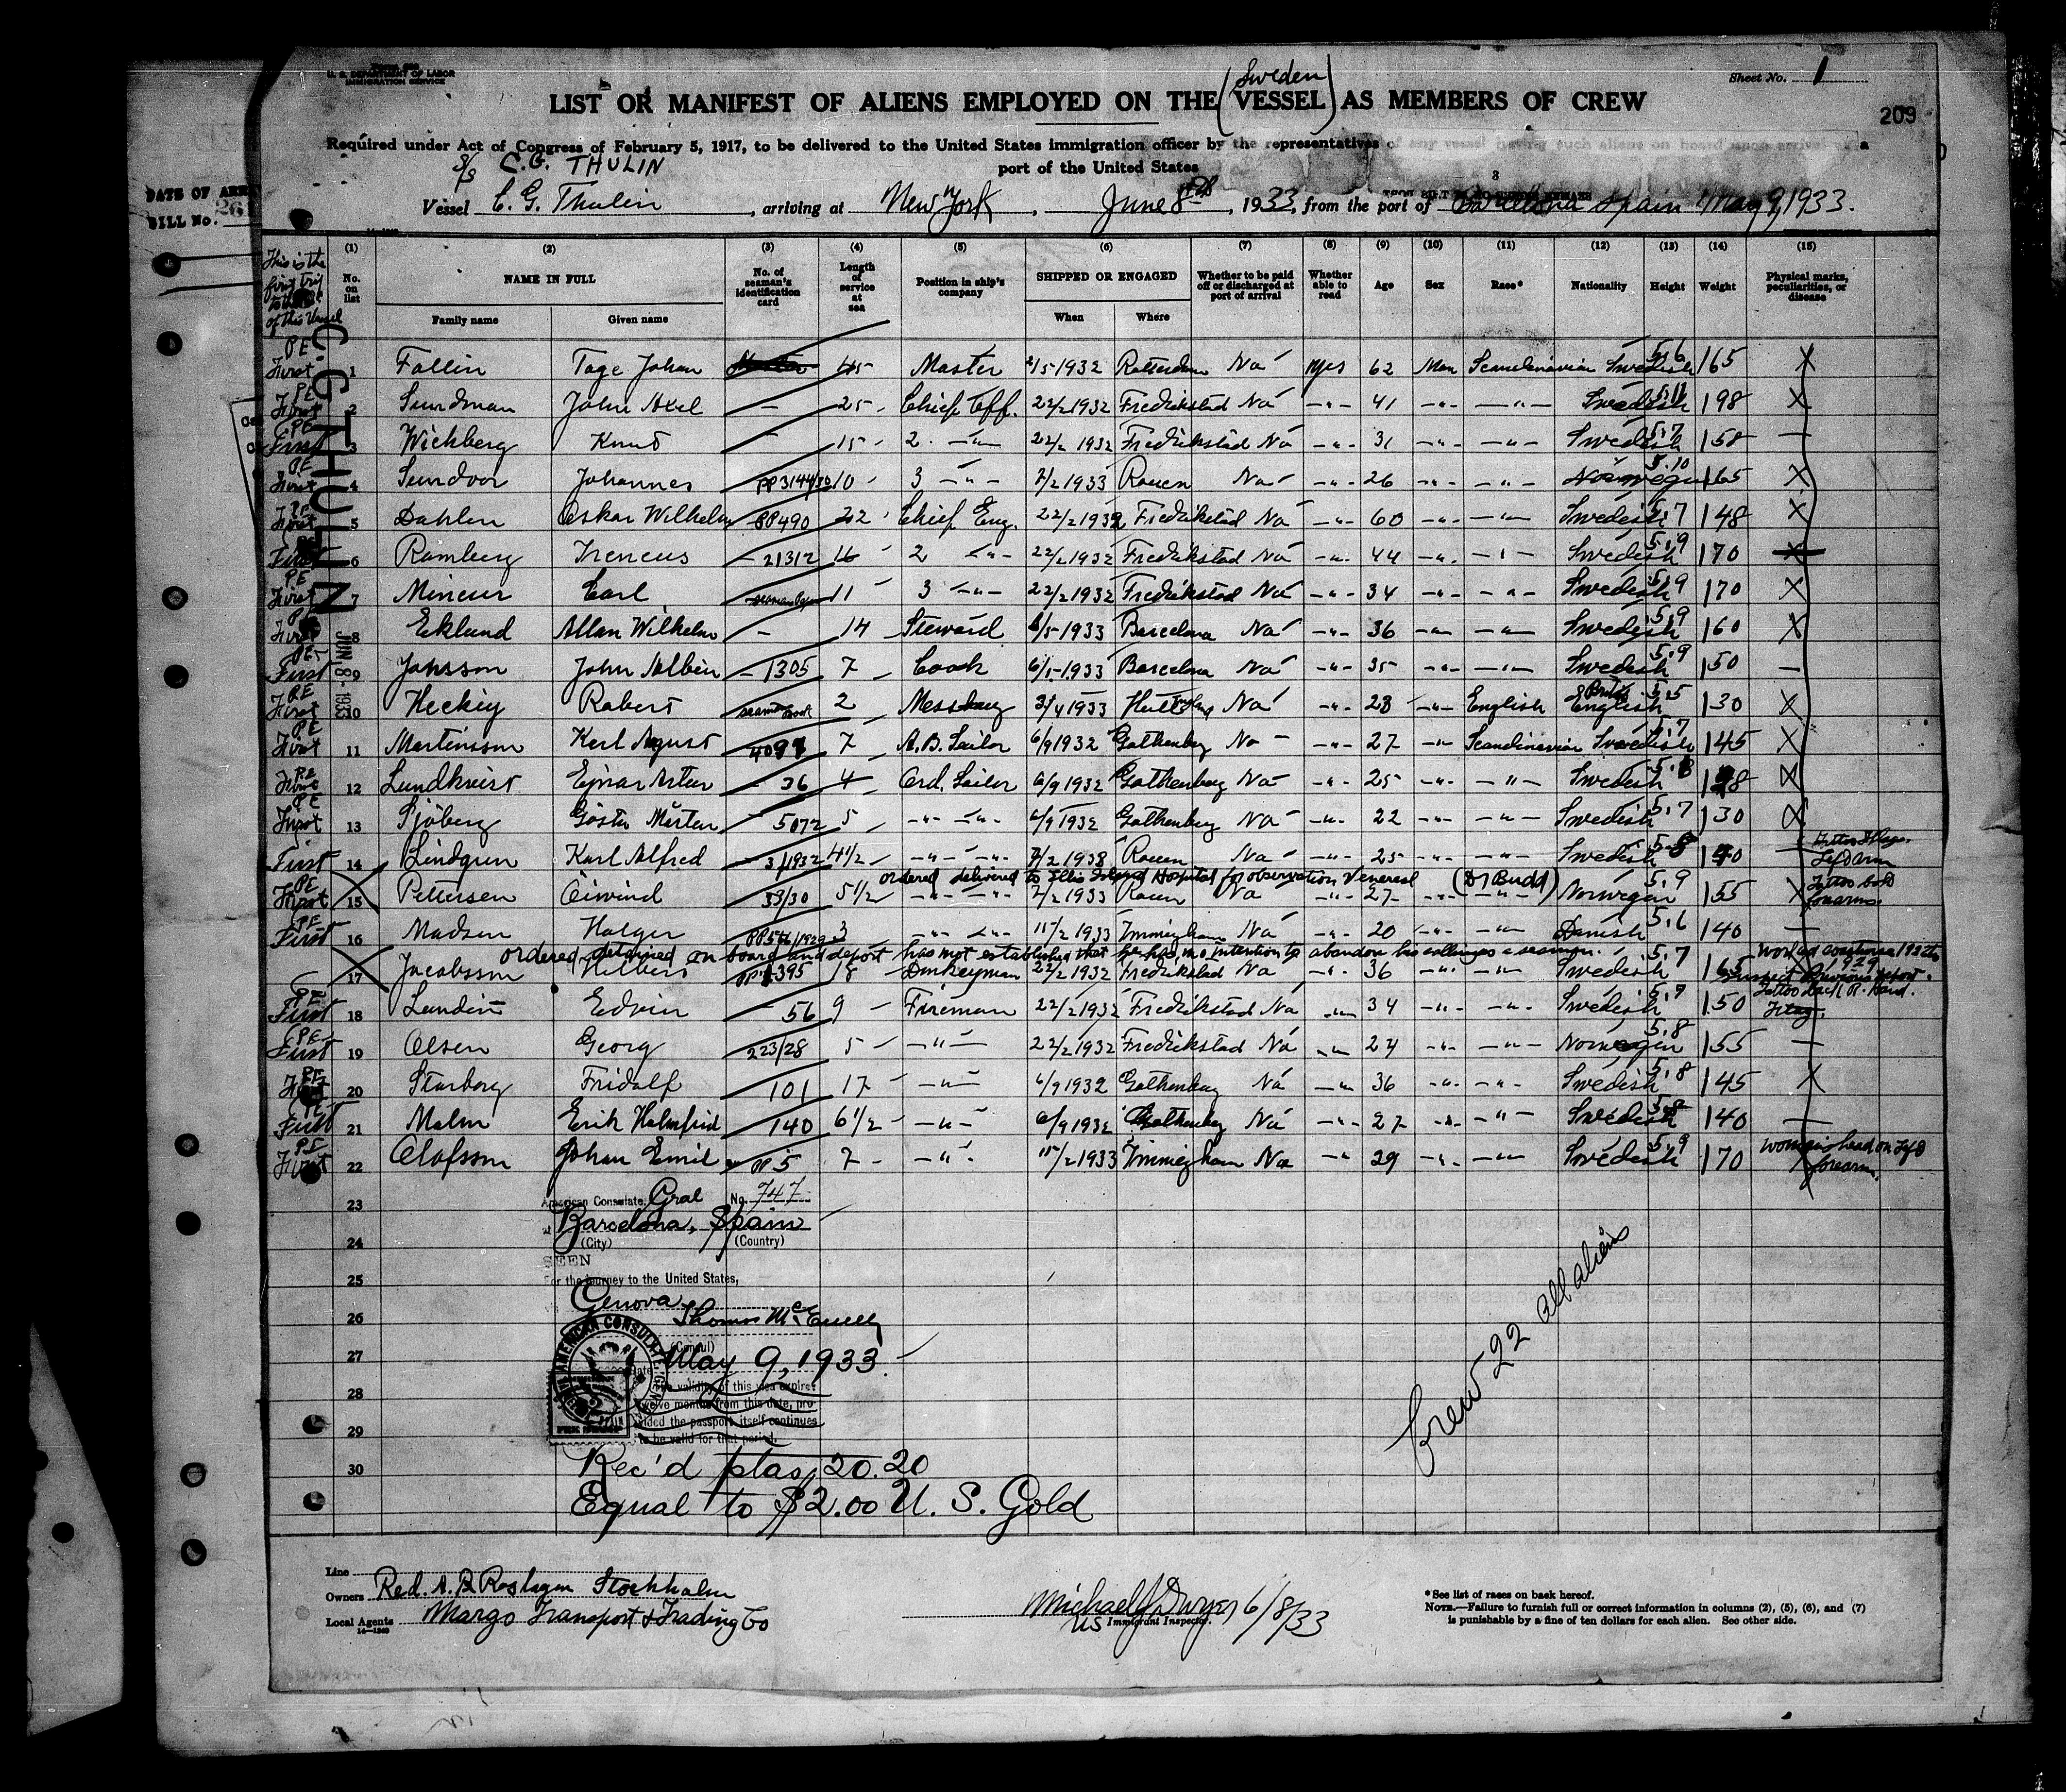 U. S. DEPARTMENT OF LABOR
IMMIGRATION SERVICE
Sheet No. 1
(Sweden)
LIST OR MANIFEST OF ALIENS EMPLOYED ON THE VESSEL AS MEMBERS OF CREW
209
Required under Act of Congress of February 5, 1917, to be delivered to the United States immigration officer by the representatives of any vessel having such aliens on board upon arrival at a
port of the United States
S/S C.G. THULIN
DATE OF
BILL No. 261
Vessel C. G. Thulin, arriving at New York, June 8th, 1933, from the port of Barcelona Spain May 9, 1933.
This is the first trip to the of this Vessel
(1) (2) (3) (4) (5) (6) (7) (8) (9) (10) (11) (12) (13) (14) (15)
No. on list NAME IN FULL No. of seaman's identification card Length of service at sea Position in ship's company SHIPPED OR ENGAGED Whether to be paid off or discharged at port of arrival Whether able to read Age Sex Race* Nationality Height Weight Physical marks, peculiarities, or disease
Family name Given name When Where
C. G. THULIN JUN 8 - 1933
PE First 1 Fallin Tage Johan 45 Master 1932 Rotterdam No Yes 62 Man Scandinavian Swedish 5.6 165 X
PE First 2 Sundman John Axel - 25 - Chief Off. 22/2 1932 Fredrikstad No -"- 41 -"- -"- Swedish 5.11 198 X
PE First 3 Wichberg Knut - 15 - 2. -"- 22/2 1932 Fredrikstad No -"- 31 -"- -"- Swedish 5.7 158 —
PE First 4 Sundvor Johannes 10 - 3 -"- 7/2 1933 Rouen No -"- 26 -"- -"- Norwegian 5.10 165 X
PE First 5 Dahlen Oskar Wilhelm PP490 22 Chief Eng. 22/2 1932 Fredrikstad No -"- 60 -"- -"- Swedish 5.7 148 X
First 6 Ramberg Ireneus - 21312 16 2 -"- 22/2 1932 Fredrikstad No -"- 44 -"- -"- Swedish 5.9 170 X
PE First 7 Mineur Carl 11 3 -"- 22/2 1932 Fredrikstad No -"- 34 -"- -"- Swedish 5.9 170 X
PE First 8 Eklund Allan Wilhelm - 14 Steward 6/5 1933 Barcelona No -"- 36 -"- -"- Swedish 5.9 160 X
PE First 9 Jansson John Albin - 1305 7 Cook 1933 Barcelona No -"- 35 -"- -"- Swedish 5.9 150 —
PE First 10 Robert seaman book 2 Messboy 1933 Hull No -"- 28 -"- English English 5.5 130 X
PE First 11 Martinsson Karl August 7 A.B. Sailor 6/9 1932 Gothenbg No -"- 27 -"- Scandinavian Swedish 5.7 145 X
PE First 12 Lundkvist Ejnar Artur 36 4 Ord. Sailor 6/9 1932 Gothenburg No -"- 25 -"- -"- Swedish 5.8 X
PE First 13 Sjöberg Gösta Mårten 5072 5 -"- -"- 6/9 1932 Gothenburg No -"- 22 -"- -"- Swedish 5.7 130
First 14 Lindgren Karl Alfred 3/1932 4 1/2 -"- -"- 7/2 1933 Rouen No -"- 25 -"- -"- Swedish 5.8 140 Left Arm
ordered delivered to Ellis Island Hospital for observation Venereal (Dr Budd)
PE First 15 Pettersen Öivind 39/30 5 1/2 -"- -"- 7/2 1933 Rouen No -"- 27 -"- Norwegian 5.9 155 X Tattoo both forearms
PE First 16 Madsen Holger 3 -"- -"- 15/2 1933 Immingham No -"- 20 -"- -"- Danish 5.6 140 —
ordered detained on board and deport has not established that he has no intention to abandon his calling as a seaman.
17 Jacobsson Hilbert 18 Donkeyman 22/2 1932 Fredrikstad No -"- 36 -"- -"- Swedish 5.7 165
PE First 18 Lundin Edvin 56 9 Fireman 22/2 1932 Fredrikstad No -"- 34 -"- -"- Swedish 5.7 150 Tattoo back R. Hand.
PE First 19 Olsen Georg 223/28 5 -"- 22/2 1932 Fredrikstad No -"- 24 -"- -"- Norwegian 5.8 155 —
PE First 20 Starborg Fridolf 101 17 -"- 6/9 1932 Gothenburg No -"- 36 -"- -"- Swedish 5.8 145 X
PE First 21 Malm Erik Halmfrid 140 6 1/2 -"- 6/9 1932 Gothenburg No -"- 27 -"- -"- Swedish 5.8 140 —
PE First 22 Olofsson Johan Emil PP 5 7 - -"- 15/2 1933 Immingham No -"- 29 -"- -"- Swedish 5.9 170 woman's head on left forearm
23 American Consulate Gral No. 747
at Barcelona, Spain
24 (City) (Country)
SEEN
25 For the journey to the United States,
Genova
26 Thomas McEnelly
(Consul)
27 May 9, 1933.
AMERICAN CONSULATE GENERAL
28 The validity of this visa expires
twelve months from this date, pro-
29 vided the passport itself continues
to be valid for that period.
30 Rec'd ptas, 20.20
Equal to $2.00 U. S. Gold
Crew 22 all aliens
Line
Owners Red. A. B. Roslagen Stockholm
Local Agents Margo Transport & Trading Co
14—1240
Michael J Dwyer 6/8/33
US Immigrant Inspector.
*See list of races on back hereof.
NOTE.—Failure to furnish full or correct information in columns (2), (5), (6), and (7)
is punishable by a fine of ten dollars for each alien. See other side.